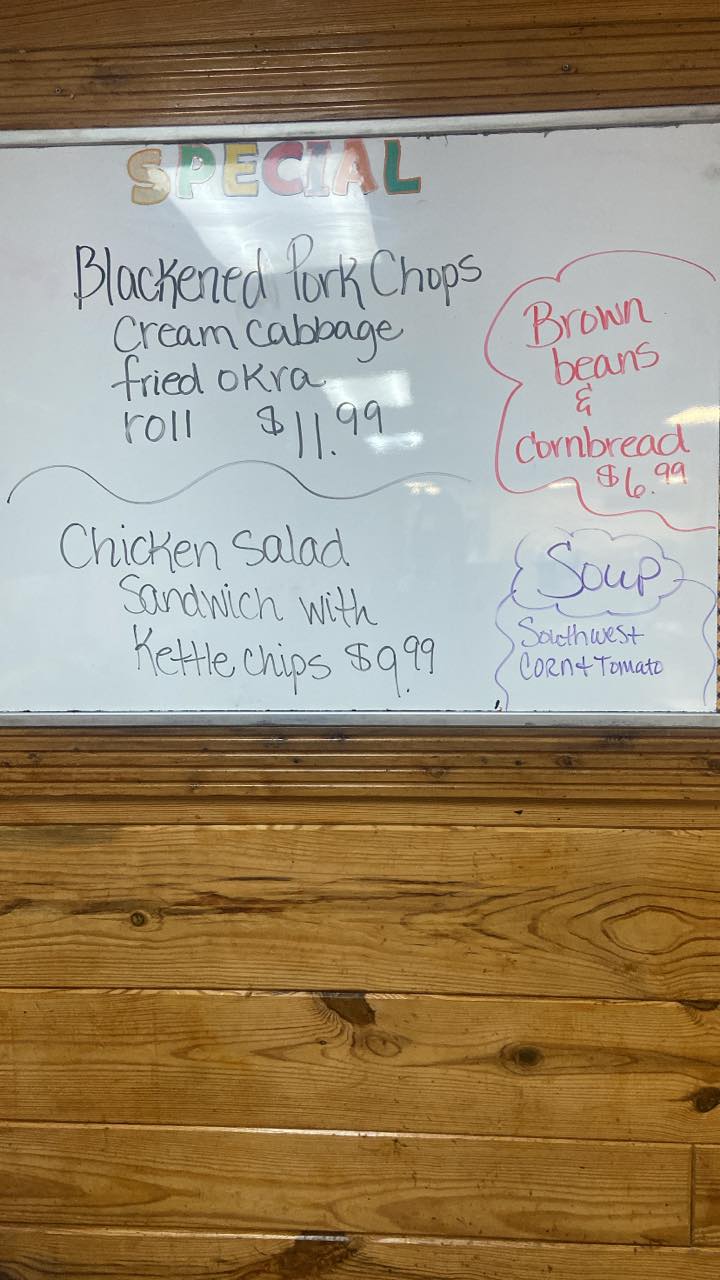 SPECIAL
Blackened Pork Chops
Cream cabbage
fried okra
roll $11.99
Chicken Salad
Sandwich with
Kettle chips $9.99
Brown
beans
&
Cornbread
$6.99
Soup
Southwest
CORN + Tomato